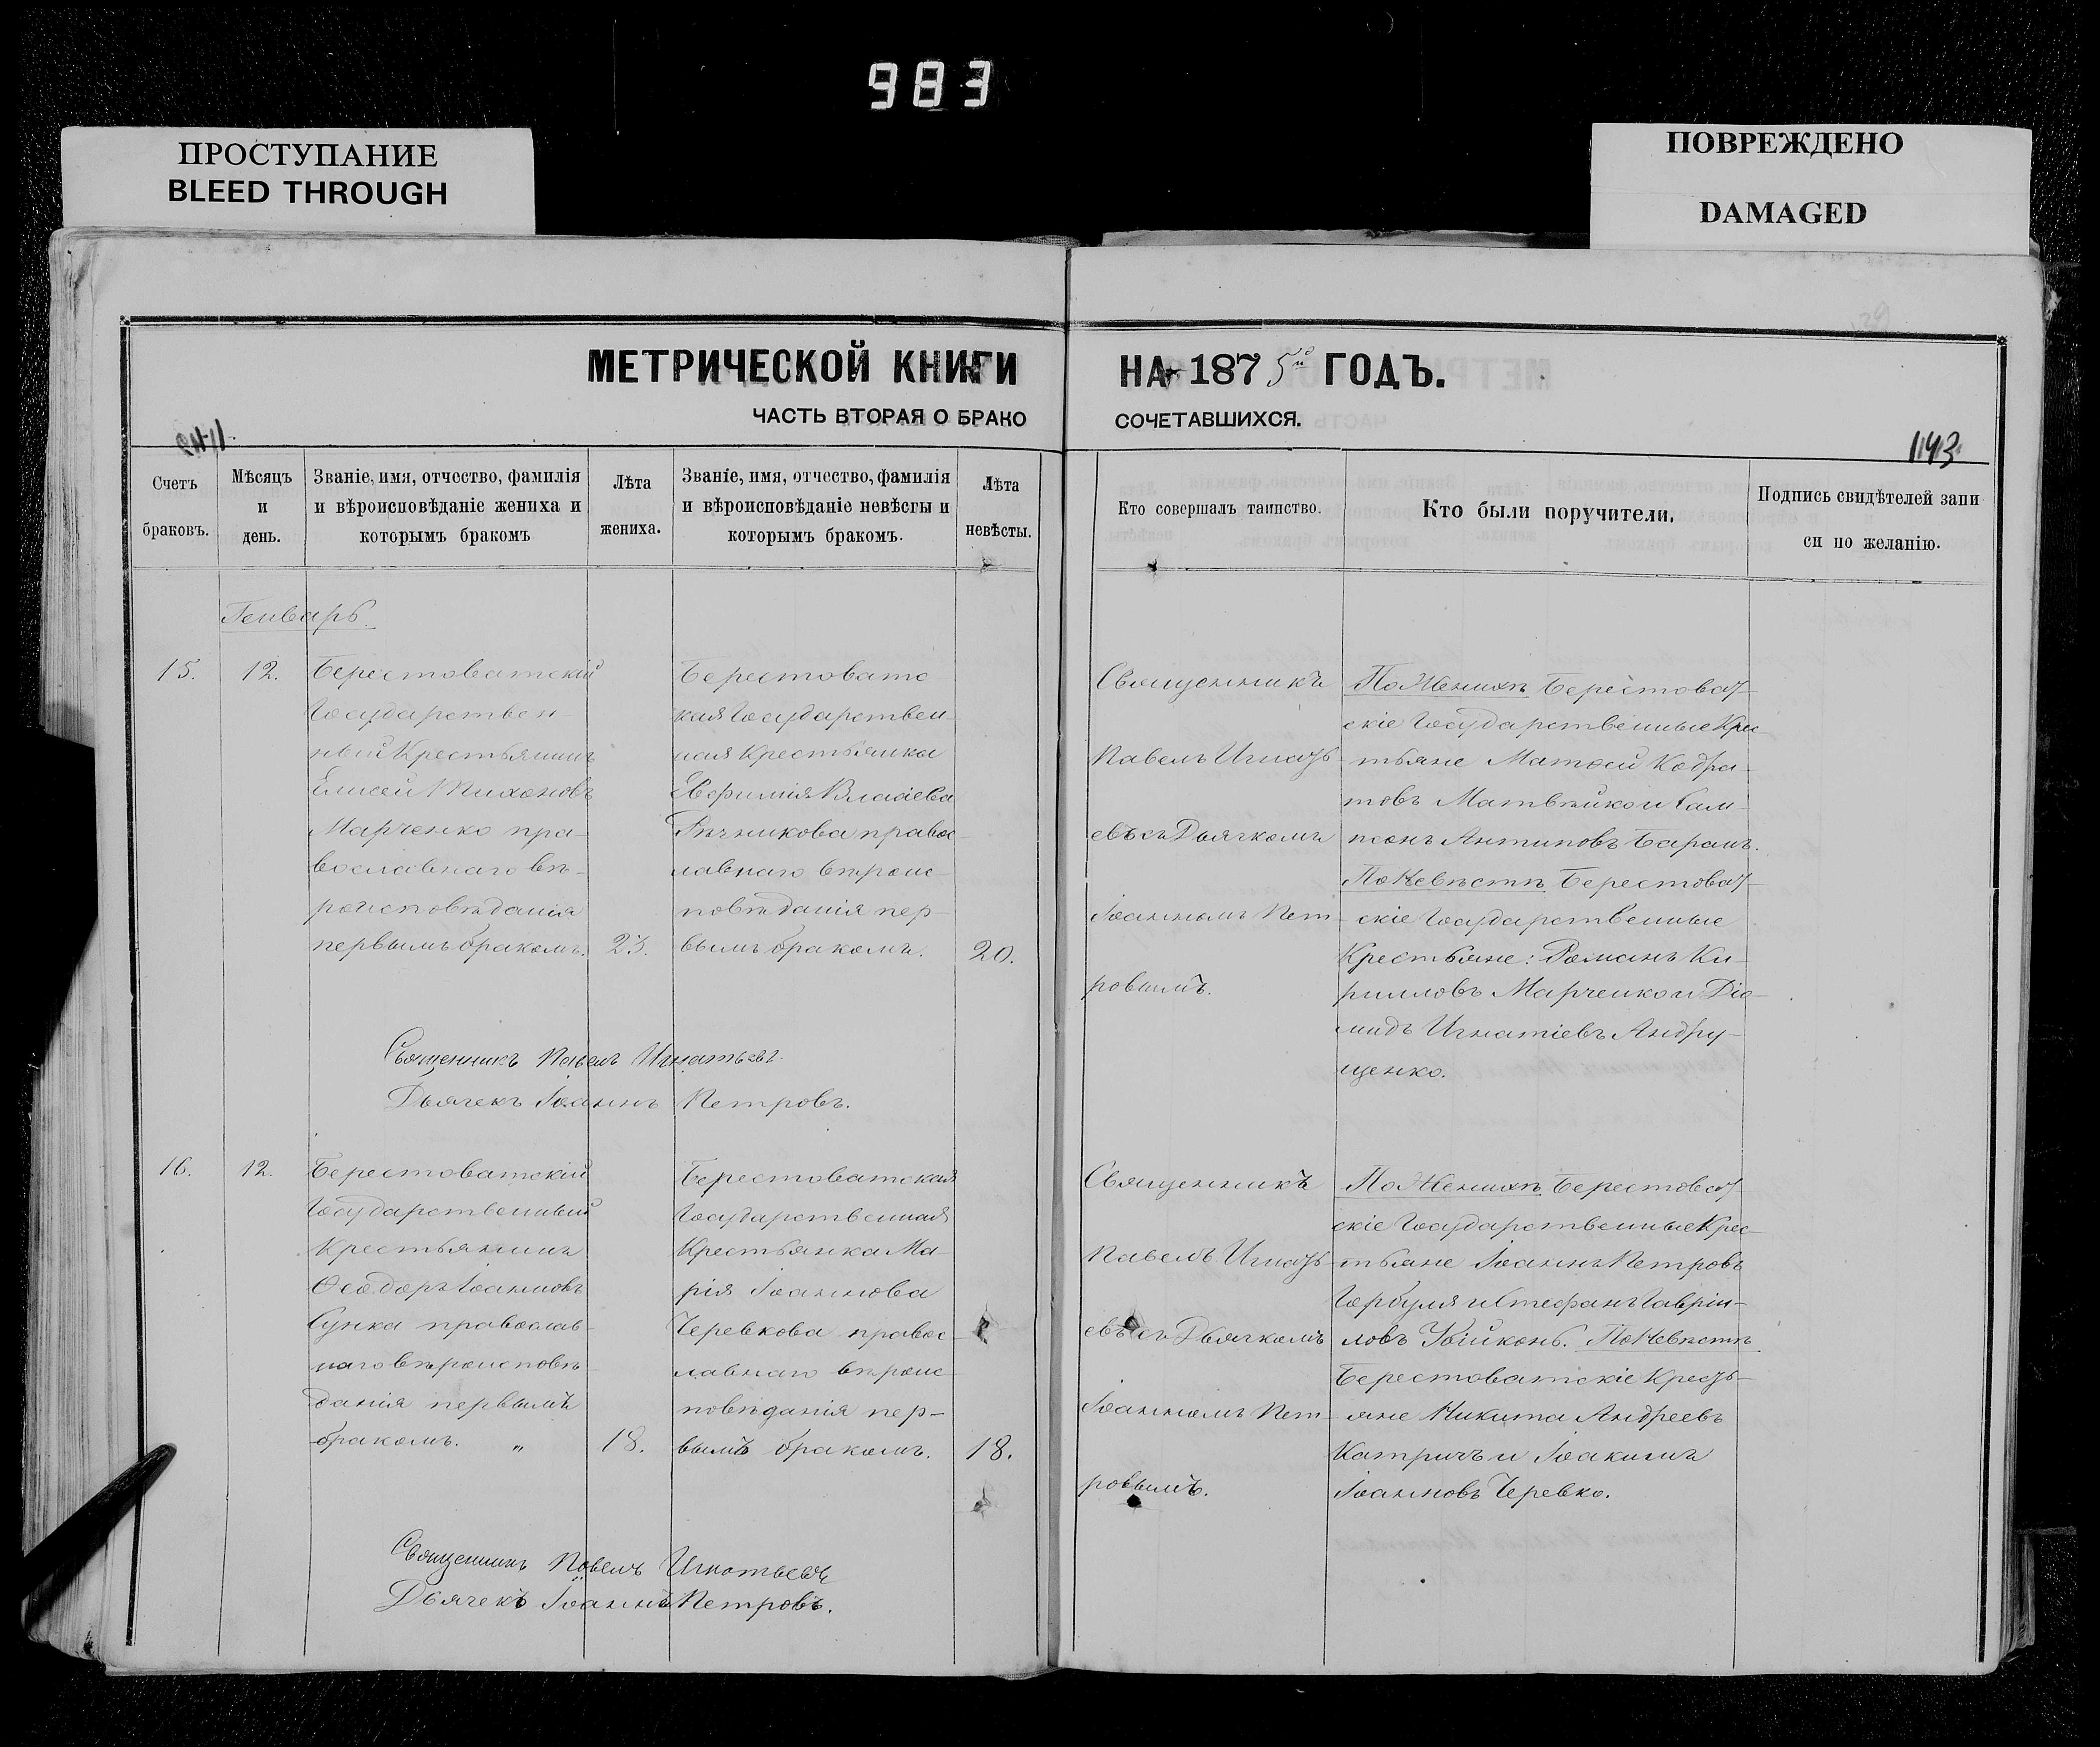 983
ПРОСТУПАНИЕ
BLEED THROUGH
ПОВРЕЖДЕНО
DAMAGED
МЕТРИЧЕСКОЙ КНИГИ
НА 1875й ГОДЪ.
ЧАСТЬ ВТОРАЯ О БРАКО
СОЧЕТАВШИХСЯ.
143
Счетъ
браковъ.
Мѣсяцъ
и
день.
Званіе, имя, отчество, фамилія
и вѣроисповѣданіе жениха и
которымъ бракомъ
Лѣта
жениха.
Званіе, имя, отчество, фамилія
и вѣроисповѣданіе невѣсты и
которымъ бракомъ.
Лѣта
невѣсты.
Кто совершалъ таинство.
Кто были поручители.
Подпись свидѣтелей запи
си по желанію.
Генварь.
15.
12.
Берестоватскій
Государствен-
ный Крестьянинъ
Елисей Тихоновъ
Марченко пра-
вославнаго вѣ-
роисповѣданія
первымъ бракомъ.
23.
Берестоватс
кая Государствен-
ная Крестьянка
Евфимія Власіева
Рѣзникова правос-
лавнаго вѣроис-
повѣданія пер-
вымъ бракомъ.
20.
Священникъ
Павелъ Игнать-
евъ съ Дьячкомъ
Іоанномъ Пет-
ровымъ.
По Женихѣ Берестоват-
скіе Государственные Крес-
тьяне Матѳей Кодра-
товъ Матвѣйко и Сам-
псонъ Антиповъ Баранъ.
По Невѣстѣ Берестоват-
скіе Государственные
Крестьяне: Романъ Ки-
рилловъ Марченко и Діо-
мидъ Игнатіевъ Андру-
щенко.
Священникъ Павелъ Игнатьевъ.
Дьячекъ Іоаннъ Петровъ.
16.
12.
Берестоватскій
Государственный
Крестьянинъ
Ѳеодоръ Іоанновъ
Сушка православ-
наго вѣроисповѣ-
данія первымъ
бракомъ. „
18.
Берестоватская
Государственная
Крестьянка Ма-
рія Іоаннова
Черевкова правос-
лавнаго вѣроис-
повѣданія пер-
вымъ бракомъ.
18.
Священникъ
Павелъ Игнать-
евъ съ Дьячкомъ
Іоанномъ Пет-
ровымъ.
По Женихѣ Берестоват-
скіе Государственные Крес-
тьяне Іоаннъ Петровъ
Горбуля и Стефанъ Гаврі-
ловъ. По Невѣстѣ
Берестоватскіе Кресть-
яне Никита Андреевъ
Катричъ и Іоакимъ
Іоанновъ Черевко.
Священникъ Павелъ Игнатьевъ
Дьячекъ Іоаннъ Петровъ.